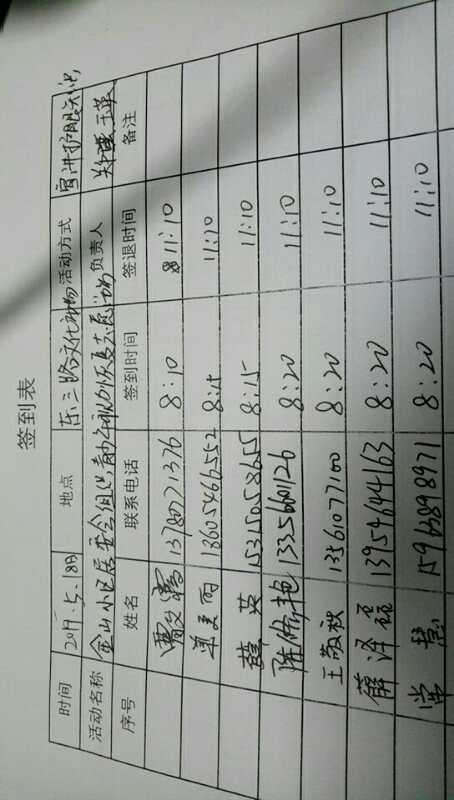 签到表
时间 2019.5.18日 地点 东三路文化广场 活动方式 宣讲护眼知识
活动名称 金山小区居委会组织青少年视力恢复志愿活动 负责人
序号 姓名 联系电话 签到时间 签退时间 备注
13780771376 8:10 11:10
18605466552 8:15 11:10
薛英 15315058655 8:15 11:10
13356601126 8:20 11:10
王敬秋 13561077100 8:20 11:10
薛泽磊 13954644163 8:20 11:10
常慧 15963898971 8:20 11:10